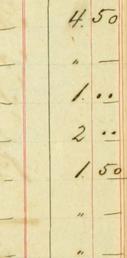 4. 50
" —
1. ..
2 ..
1. 50
" —
" —